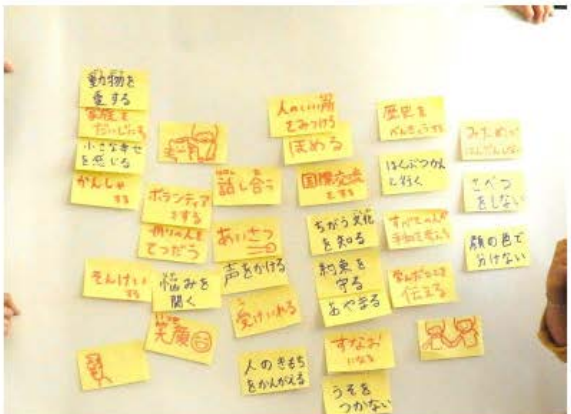 動物を
愛する
家族を
だいじにする
小さな幸せ
を感じる
かんしゃ
する
ボランティア
をする
困りの人を
てつだう
そんけい
する
悩みを
聞く
笑顔
話し合う
あいさつ
声をかける
受けいれる
人のきもち
をかんがえる
人のいい所
をみつける
ほめる
国際交流
をする
ちがう文化
を知る
約束を
守る
あやまる
すなお
になる
うそを
つかない
歴史を
べんきょうする
はくぶつかん
に行く
すべての人の
平和を考える
学んだことを
伝える
みためで
はんだんしない
さべつ
をしない
顔の色で
分けない